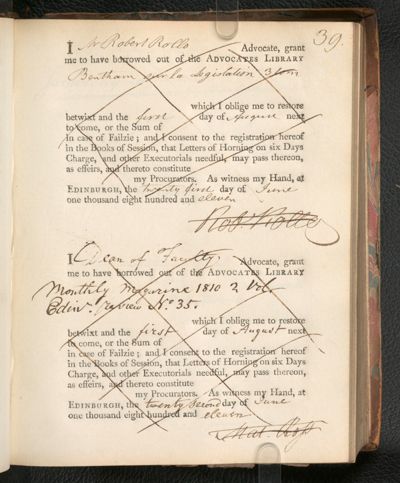 39.
I Mr Robert Rollo Advocate, grant
me to have borrowed out of the ADVOCATES LIBRARY
Bentham sur la Legislation 3 tom
which I oblige me to restore
betwixt and the first day of August next
to come, or the Sum of
in case of Failzie; and I consent to the registration hereof
in the Books of Session, that Letters of Horning on six Days
Charge, and other Executorials needful, may pass thereon,
as effeirs, and thereto constitute
my Procurators. As witness my Hand, at
EDINBURGH, the twenty first day of June
one thousand eight hundred and eleven
Rob. Rollo
I Dean of Faculty. Advocate, grant
me to have borrowed out of the ADVOCATES LIBRARY
Monthly Magazine 1810 2 Vol.
Edinr. Review No. 35.
which I oblige me to restore
betwixt and the first day of August next
to come, or the Sum of
in case of Failzie; and I consent to the registration hereof
in the Books of Session, that Letters of Horning on six Days
Charge, and other Executorials needful, may pass thereon,
as effeirs, and thereto constitute
my Procurators. As witness my Hand, at
EDINBURGH, the twenty second day of June
one thousand eight hundred and eleven
Mat. Ross